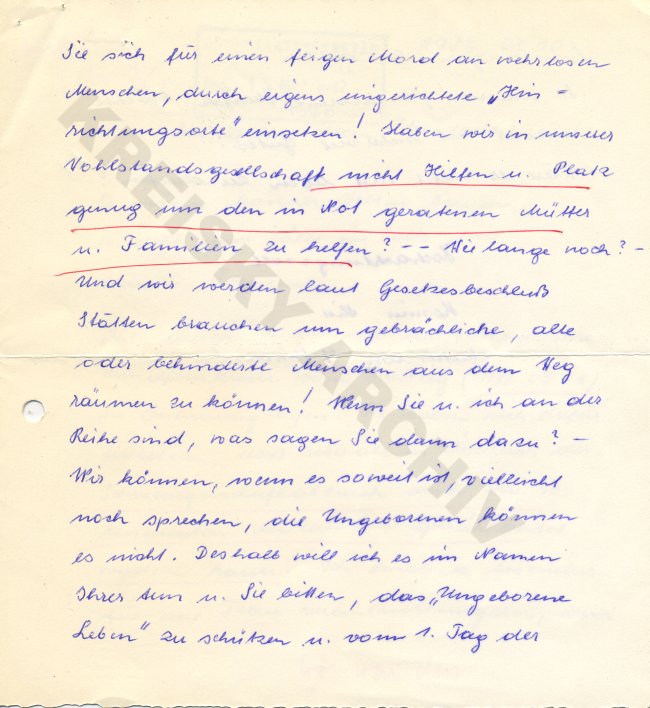 Sie sich für einen feigen Mord an wehrlosen
Menschen, durch eigens eingerichtete „Hin =
richtungsorte" einsetzen! Haben wir in unserer
Wohlstandsgesellschaft nicht Hilfen u. Platz
genug um den in Not geratenen Mütter
u. Familien zu helfen? -- Wie lange noch? -
Und wir werden laut Gesetzesbeschluß
Stätten brauchen um gebrächliche, alte
oder behinderte Menschen aus dem Weg
räumen zu können! Wenn Sie u. ich an der
Reihe sind, was sagen Sie dann dazu? -
Wir können, wenn es soweit ist, vielleicht
noch sprechen, die Ungeborenen können
es nicht. Deshalb will ich es im Namen
Ihrer tun u. Sie bitten, das „Ungeborene
Leben" zu schützen u. vom 1. Tag der
KREISKY ARCHIV